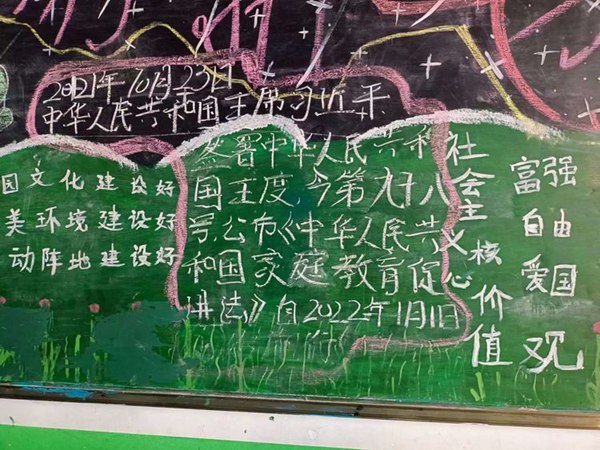 2021年10月23日
中华人民共和国主席习近平
签署中华人民共和
国主度令第九十八
号,公布《中华人民共
和国家庭教育促
进法》自2022年1月1日
园文化建设好
美环境建设好
动阵地建设好
社会主义核心价值观
富强
自由
爱国